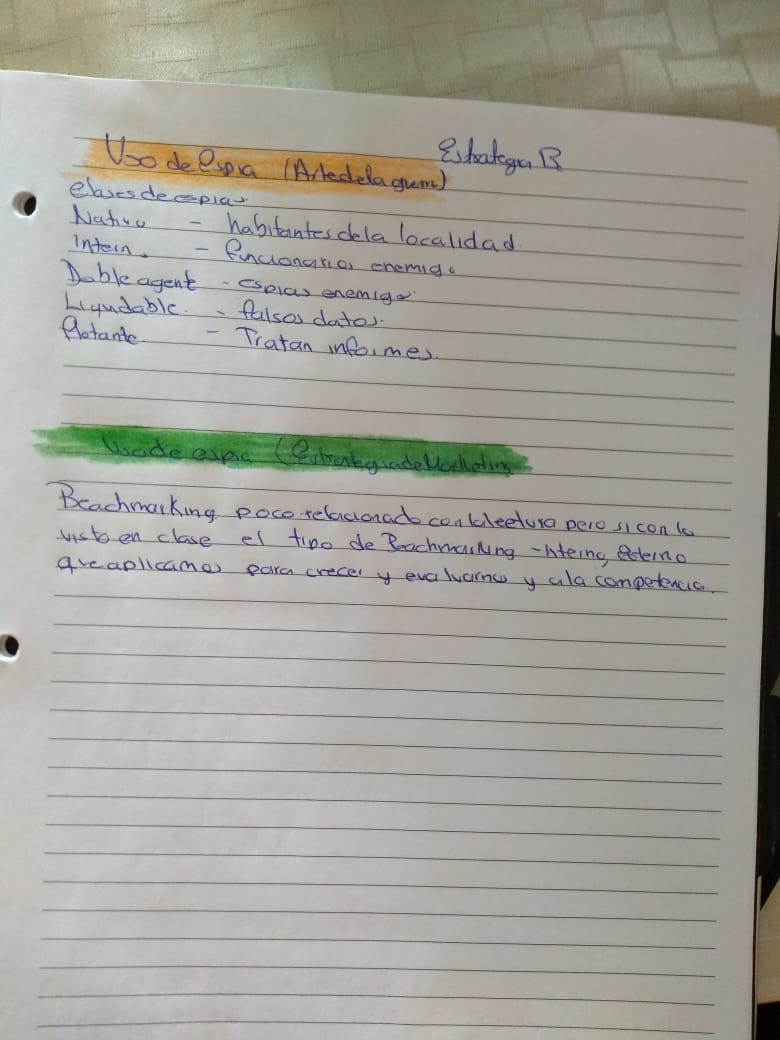 Uso de espia (Arte de la guerra)
Estrategia B
Clases de espias
Nativo - habitantes de la localidad
Intern. - funcionarios enemigo
Doble agent - espias enemigo
Liquidable. - falsos datos.
flotante - Tratan informes.
Uso de espia (Estrategia de Marketing
Beachmarking poco relacionado con la lectura pero si con lo
visto en clase el tipo de Beachmarking - Interno, Externo
que aplicamos para crecer y evaluarnos y a la competencia.